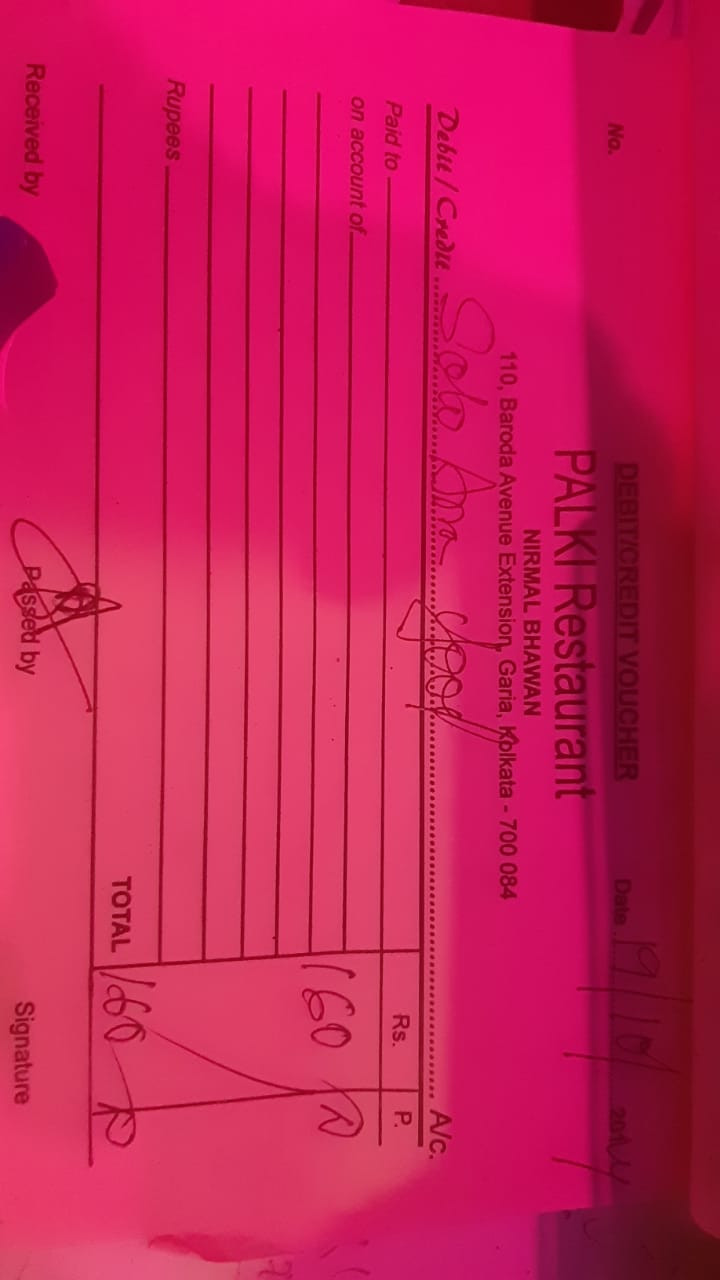 DEBIT/CREDIT VOUCHER
No. Date 19/10/
PALKI Restaurant
NIRMAL BHAWAN
110, Baroda Avenue Extension, Garia, Kolkata - 700 084
Debit / Credit A/c.
Paid to Rs. P.
on account of
160
Rupees
TOTAL 160
Received by Passed by Signature